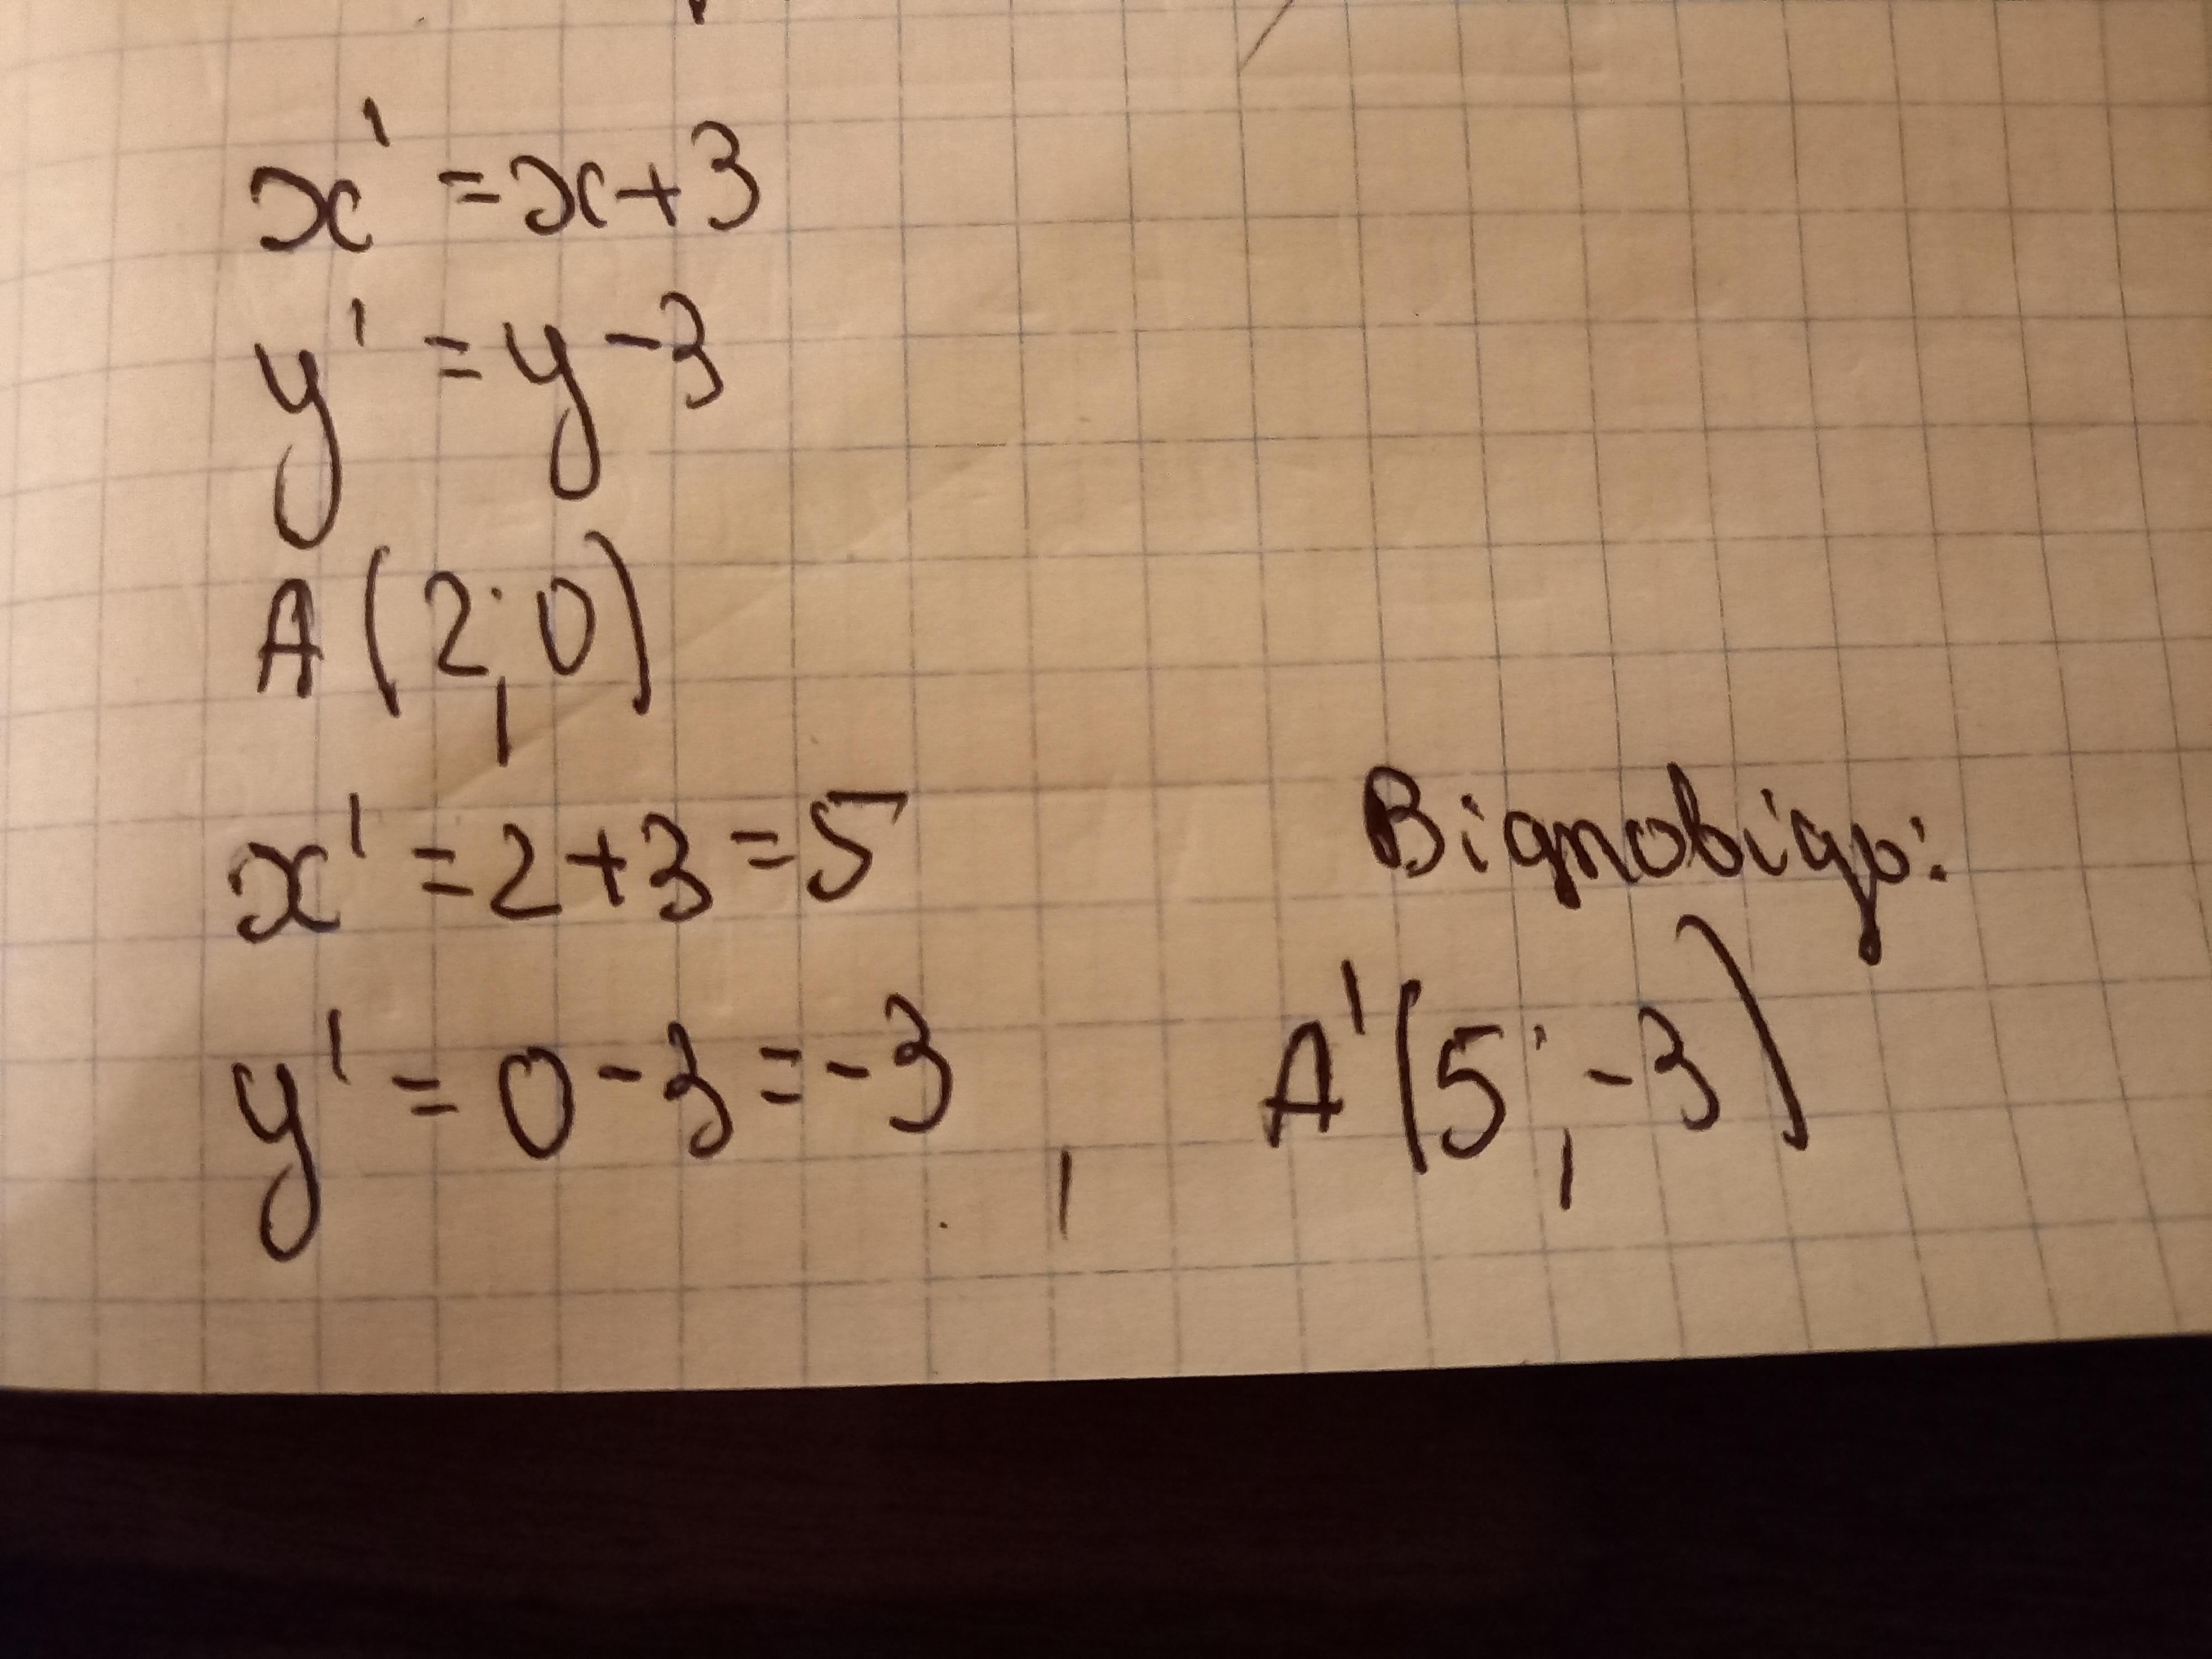 x' = x+3
y' = y-3
A (2; 0)
x' = 2+3 = 5
y' = 0-3 = -3,
Відповідь:
A' (5; -3)